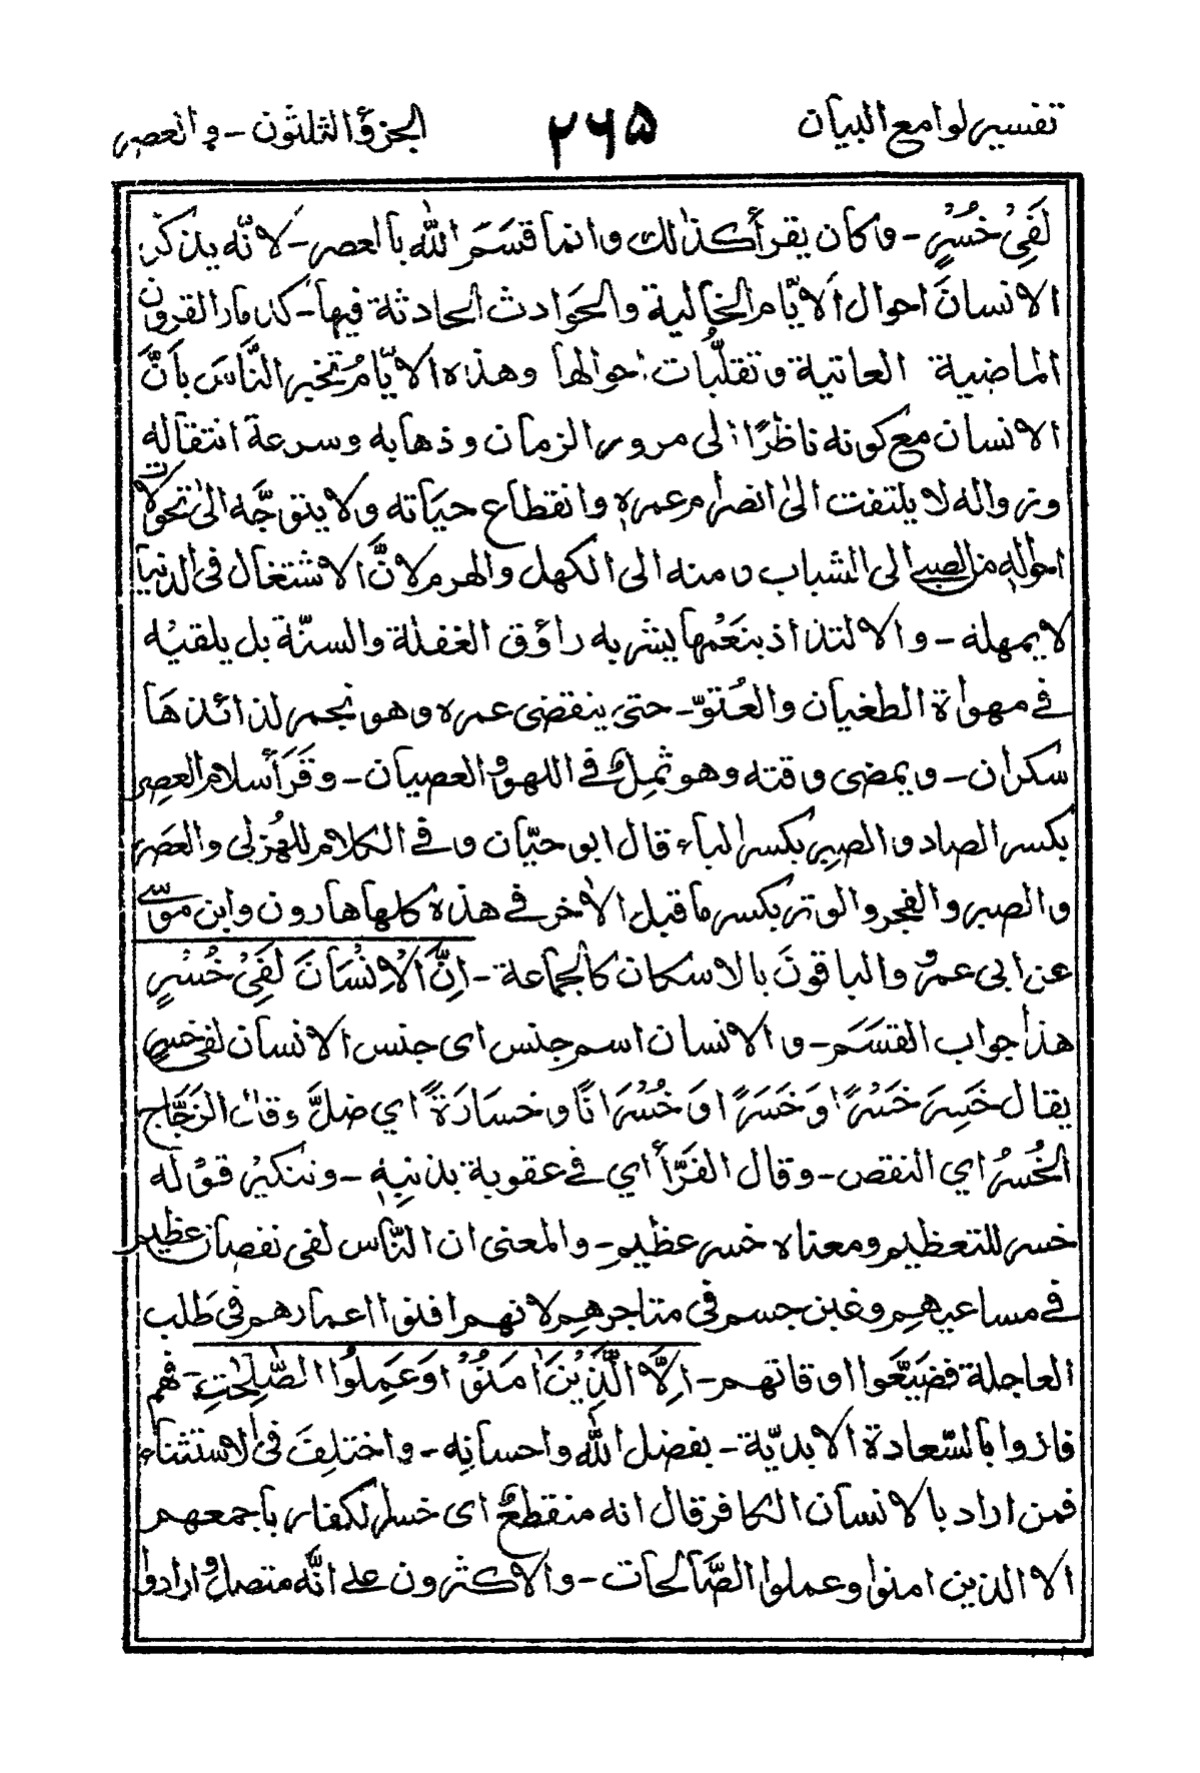 تفسير لوامع البيان ٢٦٥ الجزؤ الثلثون - والعصر
لَفِيْ خُسْرٍ - وكان يقرأ كذالك وانما قَسَمَ اللّٰه بالعصر - لانّه يذكر
الانسانَ احوال الايّام الخالية والحَوادث الحادثة فيها - كدمار القرون
الماضية العاتية وتقلّبات احوالها وهذه الايّامُ تخبر النَّاسَ بأنَّ
الانسان مع كونه ناظرًا الى مرور الزمان وذهابه وسرعة انتقاله
وزواله لا يلتفت الىٰ انصرام عمرهٖ وانقطاع حيَاته ولا يتوجَّه الىٰ تحوّلات
احوالهٖ من الصبى الى الشباب ومنه الى الكهل والهرم لانَّ الاشتغال فى الدنيا
لا يمهله - والالتذاذ بنَعَمها يشربه راؤق الغفلة والسنّة بل يلقيْه
في مهواة الطغيان والعُتوّ - حتى ينقضى عمره وهو بخمر لذائذهَا
سكران - ويمضى وقته وهو ثمِلٌ في اللهو والعصيان - وقَرَأَ سلام العصِر
بكسر الصاد والصبِر بكسر الباء قال ابو حيّان وفي الكلام للهُزلى والعصَر
والصبر والفجر والوتر بكسر ما قبل الاٰخر في هذه كلها هارون وابن موسٰى
عن ابى عمروٌ والباقونَ بالاسكان كالجماعة - اِنَّ الْاِنْسَانَ لَفِيْ خُسْرٍ
هذا جواب القسَمَ - والانسان اسم جنس اى جنس الانسان لفى خسرٍ
يقال خَسِرَ خَسْرًا وَخَسَرًا وَ خُسْرَانًا وخسَارَةً اي ضلَّ وقال الزَجَّاج
الخُسْرُ اي النقص - وقال الفَرّأ اي في عقوبة بذنبِهٖ - وتنكيْر قوْله
خسر للتعظيم ومعناه خسر عظيم - والمعنى ان النّاس لفى نقصان عظيم
في مساعيهم وغبن جسم فى متاجرهم لانهم افنوا اعمارهم فى طلب
العاجلة فضيَّعوا اوقاتهم - اِلَّا الَّذِيْنَ اٰمَنُوْا وَعَمِلُوا الصّٰلِحٰتِ - هُم
فازوا بالسّعادة الابديّة - بفضل اللّٰه واحسانِه - واختلِفَ فى الاستثناء
فمن اراد بالانسان الكافر قال انه منقطعٌ اى خسر الكفار باجمعهم
الا الذين امنوا وعملوا الصّالحات - والاكثرون على انَّه متصل وارادوا